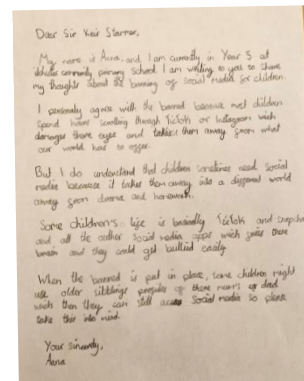 Dear Sir Keir Starmer,
My name is Anna, and I am currently in Year 5 at
community primary school. I am writing to you to share
my thoughts about the banning of social media for children.
I personally agree with the banned because most children
spend hours scrolling through TikTok or Instagram wich
damages there eyes and takes them away from what
our world has to offer.
But I do understand that children sometimes need social
media because it takes them away into a different world
away from drama and homework.
Some children's life is basically TikTok and snapchat
and all the other social media apps wich ruins there
brain and they could get bullied easily.
When the banned is put in place, some children might
use older sibblings profiles or there mums or dad
wich then they can still access social media so please
take this into mind.
Your sincerely,
Anna